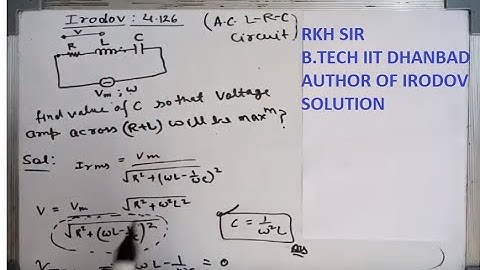 Irodov: 4.126
(A.C L-R-C
Circuit)
V
R L C
Vm ; ω
RKH SIR
B.TECH IIT DHANBAD
AUTHOR OF IRODOV
SOLUTION
find value of C so that Voltage
amp across (R+L) will be maxᵐ?
Sol:
Irms = Vm / √R²+(ωL-1/ωC)²
V = Vm √R²+ω²L² / √R²+(ωL-1/ωC)²
C = 1/ω²L
Ans
ωL-1/ωC = 0